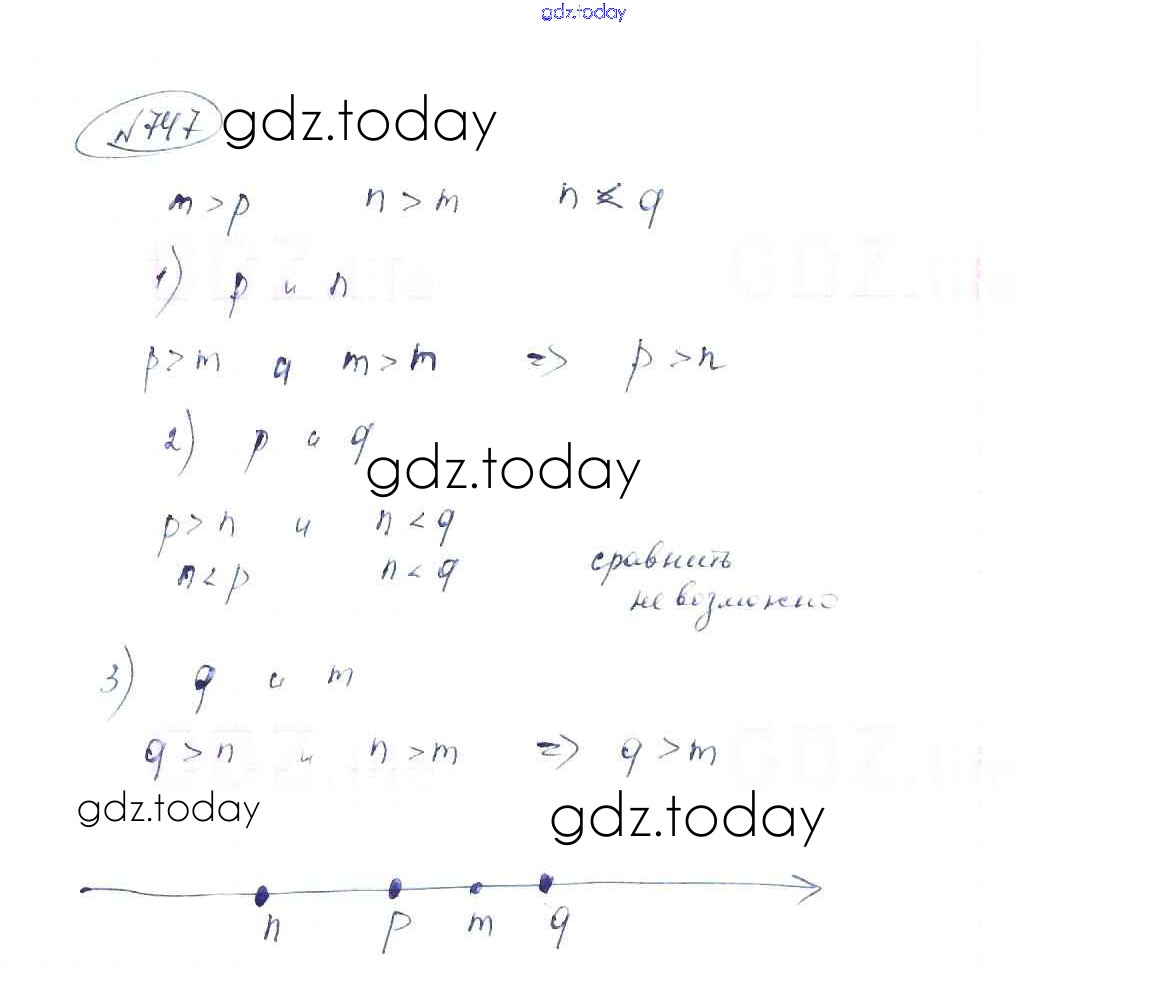 gdz.today
№747 gdz.today
m > p n > m n < q
1) p и n
p > m а m > n => p > n
2) p и q
gdz.today
p > n и n < q
n < p n < q сравнить
невозможно
3) q и m
q > n и n > m => q > m
gdz.today gdz.today
n p m q